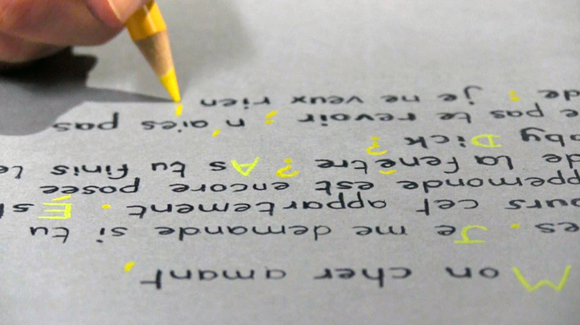 Mon cher amant,
es. Je me demande si tu
ours cet appartement. Es
ppemonde est encore posée
de la fenêtre ? As tu finis le
oby Dick ?
e pas te revoir ; n'aies pas
de : je ne veux rien